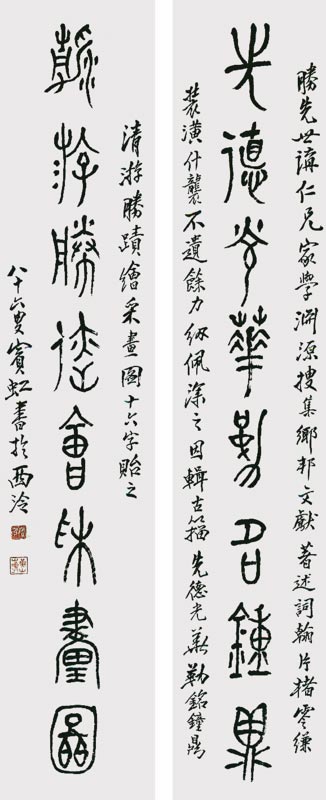 勝先世講仁兄家學淵源搜集鄉邦文獻著述詞翰片楮零縑
先德光華勒名鐘鼎
裝潢什襲不遺餘力紉佩深之因輯古籀先德光華勒銘鐘鼎
清游勝蹟繪采畫圖十六字貽之
清游勝蹟繪采畫圖
八十六叟賓虹書於西泠